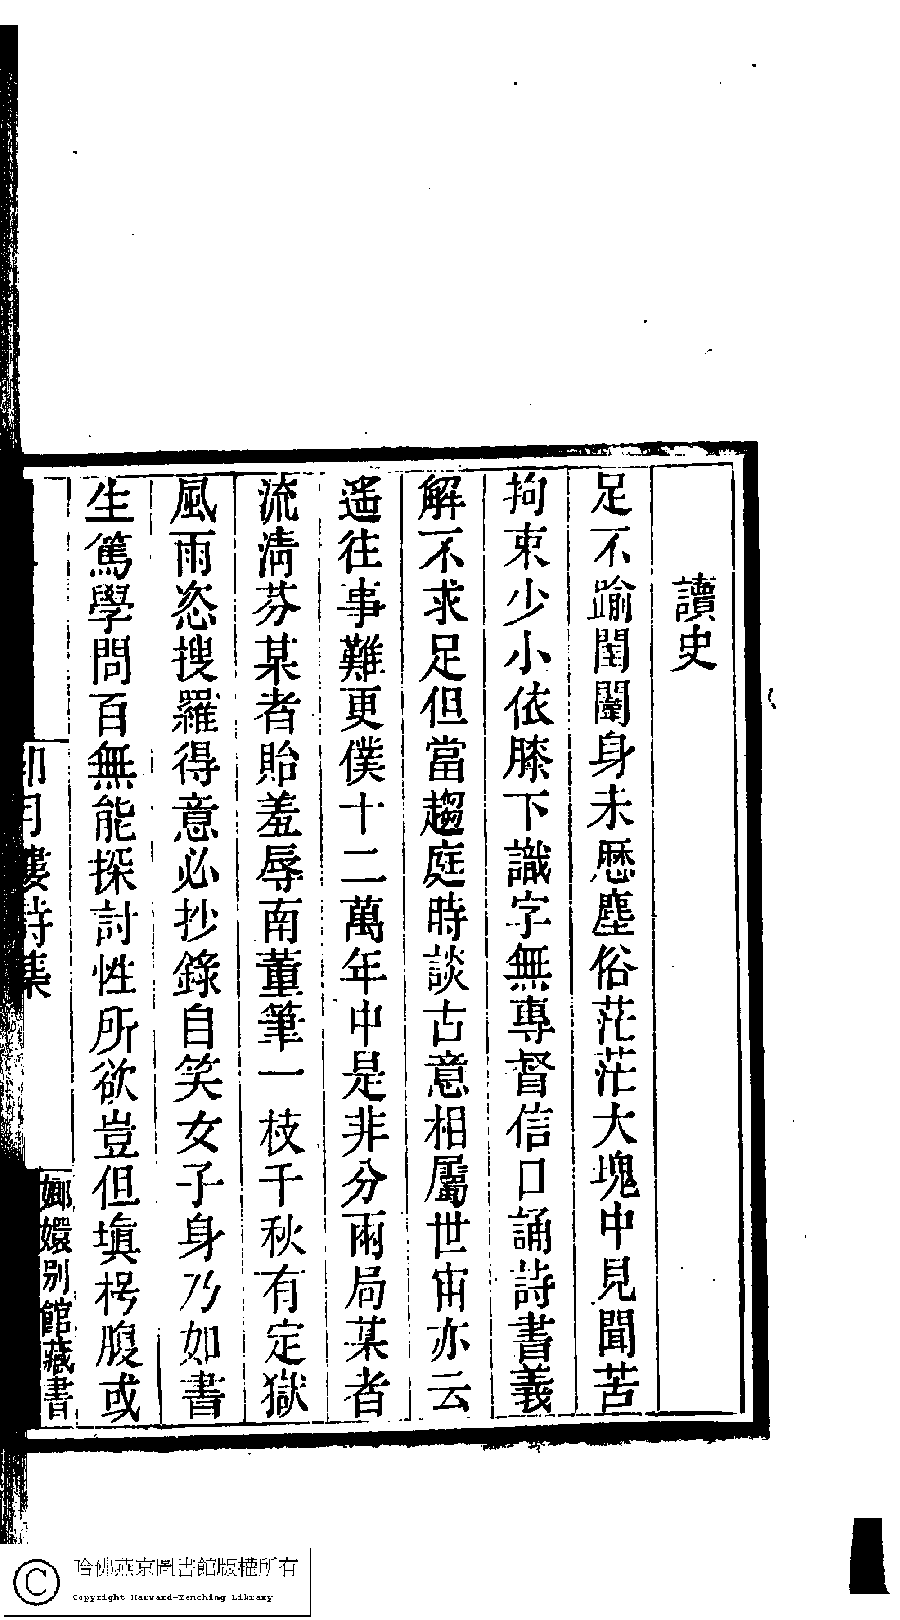 讀史
足不踰閨闥身未歷塵俗茫茫大塊中見聞苦
拘束少小依膝下識字無專督信口誦詩書義
解不求足但當趨庭時談古意相屬世宙亦云
遥往事難更僕十二萬年中是非分兩局某者
流淸芬某者貽羞辱南董筆一枝千秋有定獄
風雨恣搜羅得意必抄錄自笑女子身乃如書
生篤學問百無能探討性所欲豈但塡枵腹或
印月樓詩集
嫏嬛別館藏書
哈佛燕京圖書館版權所有
Copyright Harvard-Yenching Library